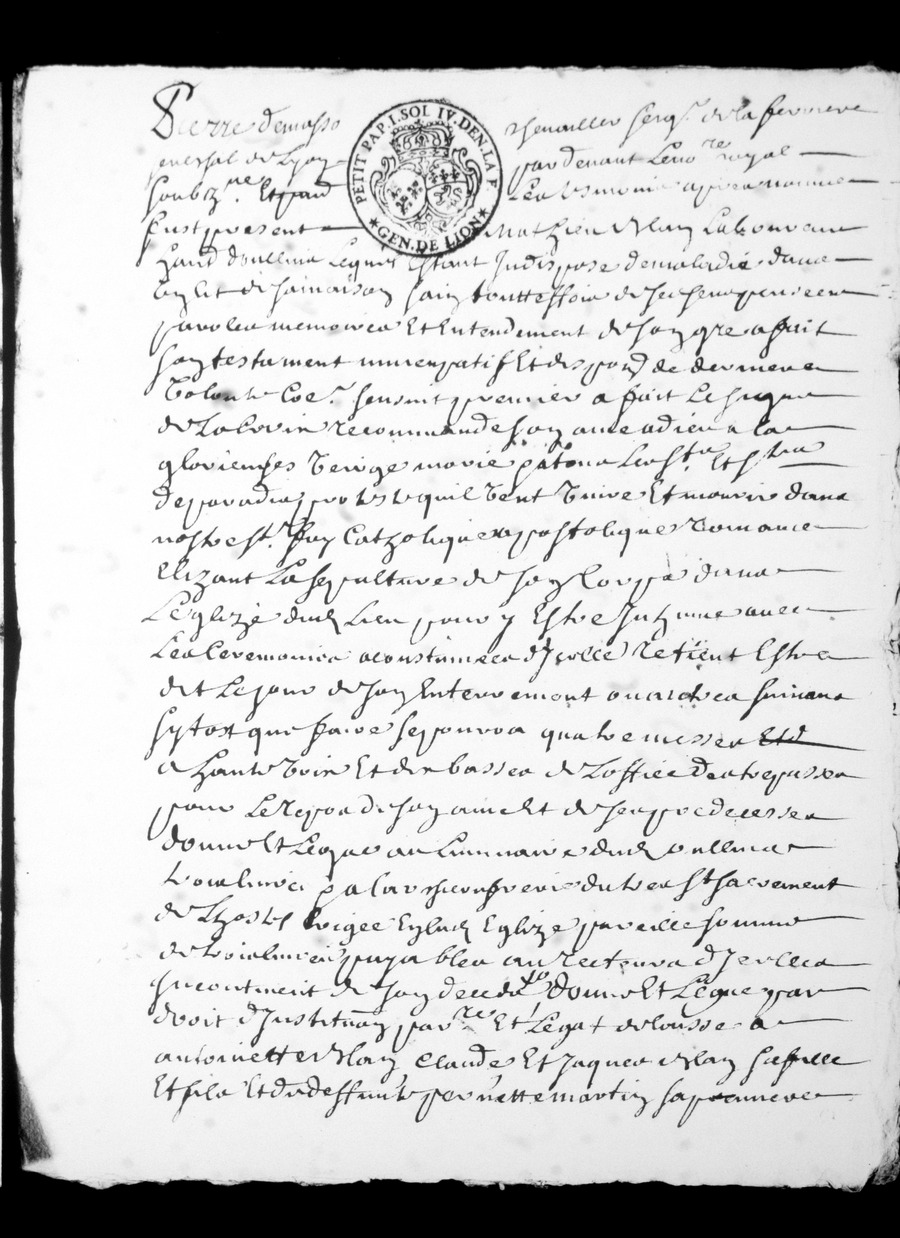 Pierre demasso chevallier seigr de la ferriere
seneschal de Lyon pardevant Le nore royal
soubzne Et pnd Les tesmoins apres nommes
fust present Mathieu Laboureur
habt doullins Lequel Estant Indispose de maladie dans
Un lit de sa maison sain touttesfois de ses sens pensees
parolles memoires Et Entendement de son gre a fait
son testament nuncupatif Et dispon de derniere
Volonte Coe. sensuit premier a fait Le signe
de La Croix recommande son ame a dieu a la
glorieuses Vierge marie a tous Les sts Et stes
de paradis quil Veut Vivre Et mourir dans
nostre st. foy Catholique apostolique Romaine
Elizant La sepulture de son Corps dans
Leglize dud Lieu pour y Estre Inhume avec
Les Ceremonies acoustumees d'Icelle Veut Estre
dit Le jour de son Enterrement ou aultres suivans
sytost que faire se pourra quatre messes Et d
a haute Voix Et de basses de Loffice des trepasses
pour Le repos de son ame Et de ses predecesses
donne Et Legue au Luminaire dud oullins
trois livres a la Confrerie du tres st sacrement
de Lhostel Erigee En lad Eglize pareille somme
de trois livres payables au Recteurs d'Icelles
Incontinent de son deceds donne Et Legue par
droit d'Institution parre Et Legat delaisse a
antoinette Claude Et Jaques sa fille
Et fils Et de deffunte pernette martin sa premiere
PETIT PAP. 1. SOL IV. DEN. LA F.
GEN. DE LION